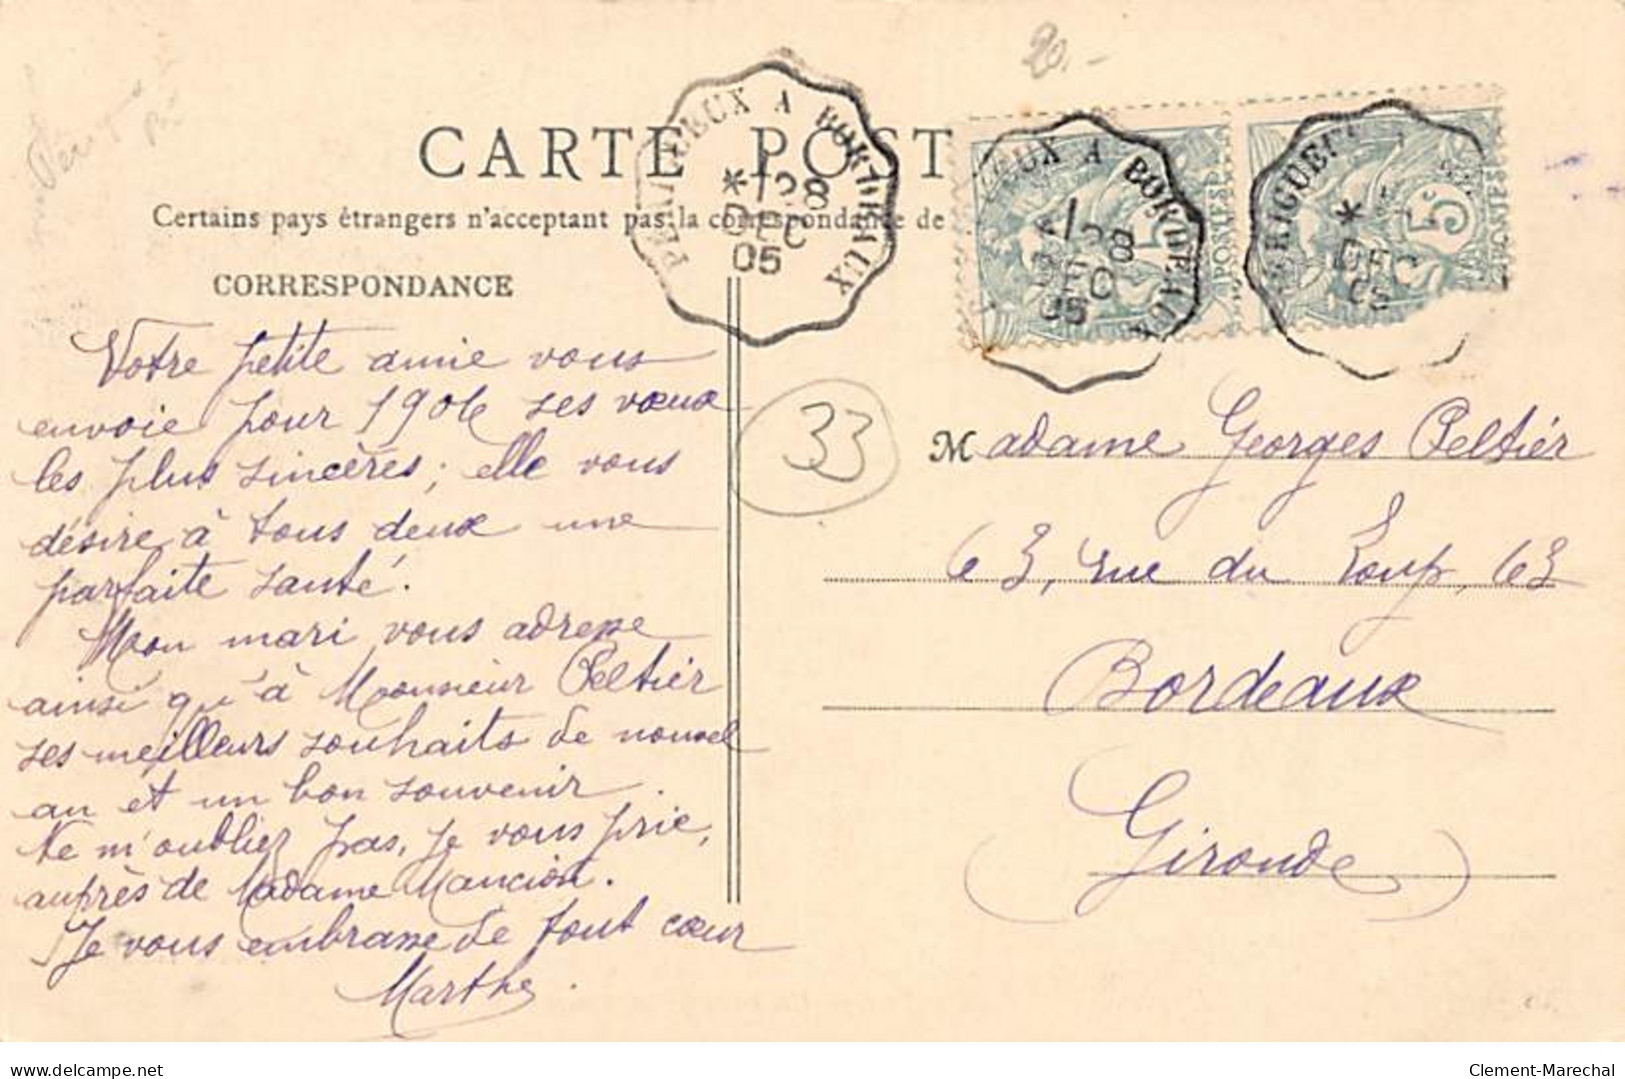 20.-
CARTE POST
Certains pays étrangers n'acceptent pas la correspondance de
CORRESPONDANCE
PERIGUEUX A BORDEAUX
*1 28
DEC
05
EUX A BORDEAUX
*1 28
DEC
05
5
POSTES
PERIGUE
*
DEC
05
5c
POSTES
Votre petite amie vous
envoie pour 1906 ses vœux
les plus sincères; elle vous
désire à tous deux une
parfaite santé.
Mon mari vous adresse
ainsi qu'à Monsieur Peltier
ses meilleurs souhaits de nouvel
an et un bon souvenir.
Ne m'oubliez pas, je vous prie,
auprès de Madame Mancion.
Je vous embrasse de tout cœur
Marthe.
33
Madame Georges Peltier
63, rue du Loup, 63
Bordeaux
(Gironde)
www.delcampe.net
Clement-Marechal